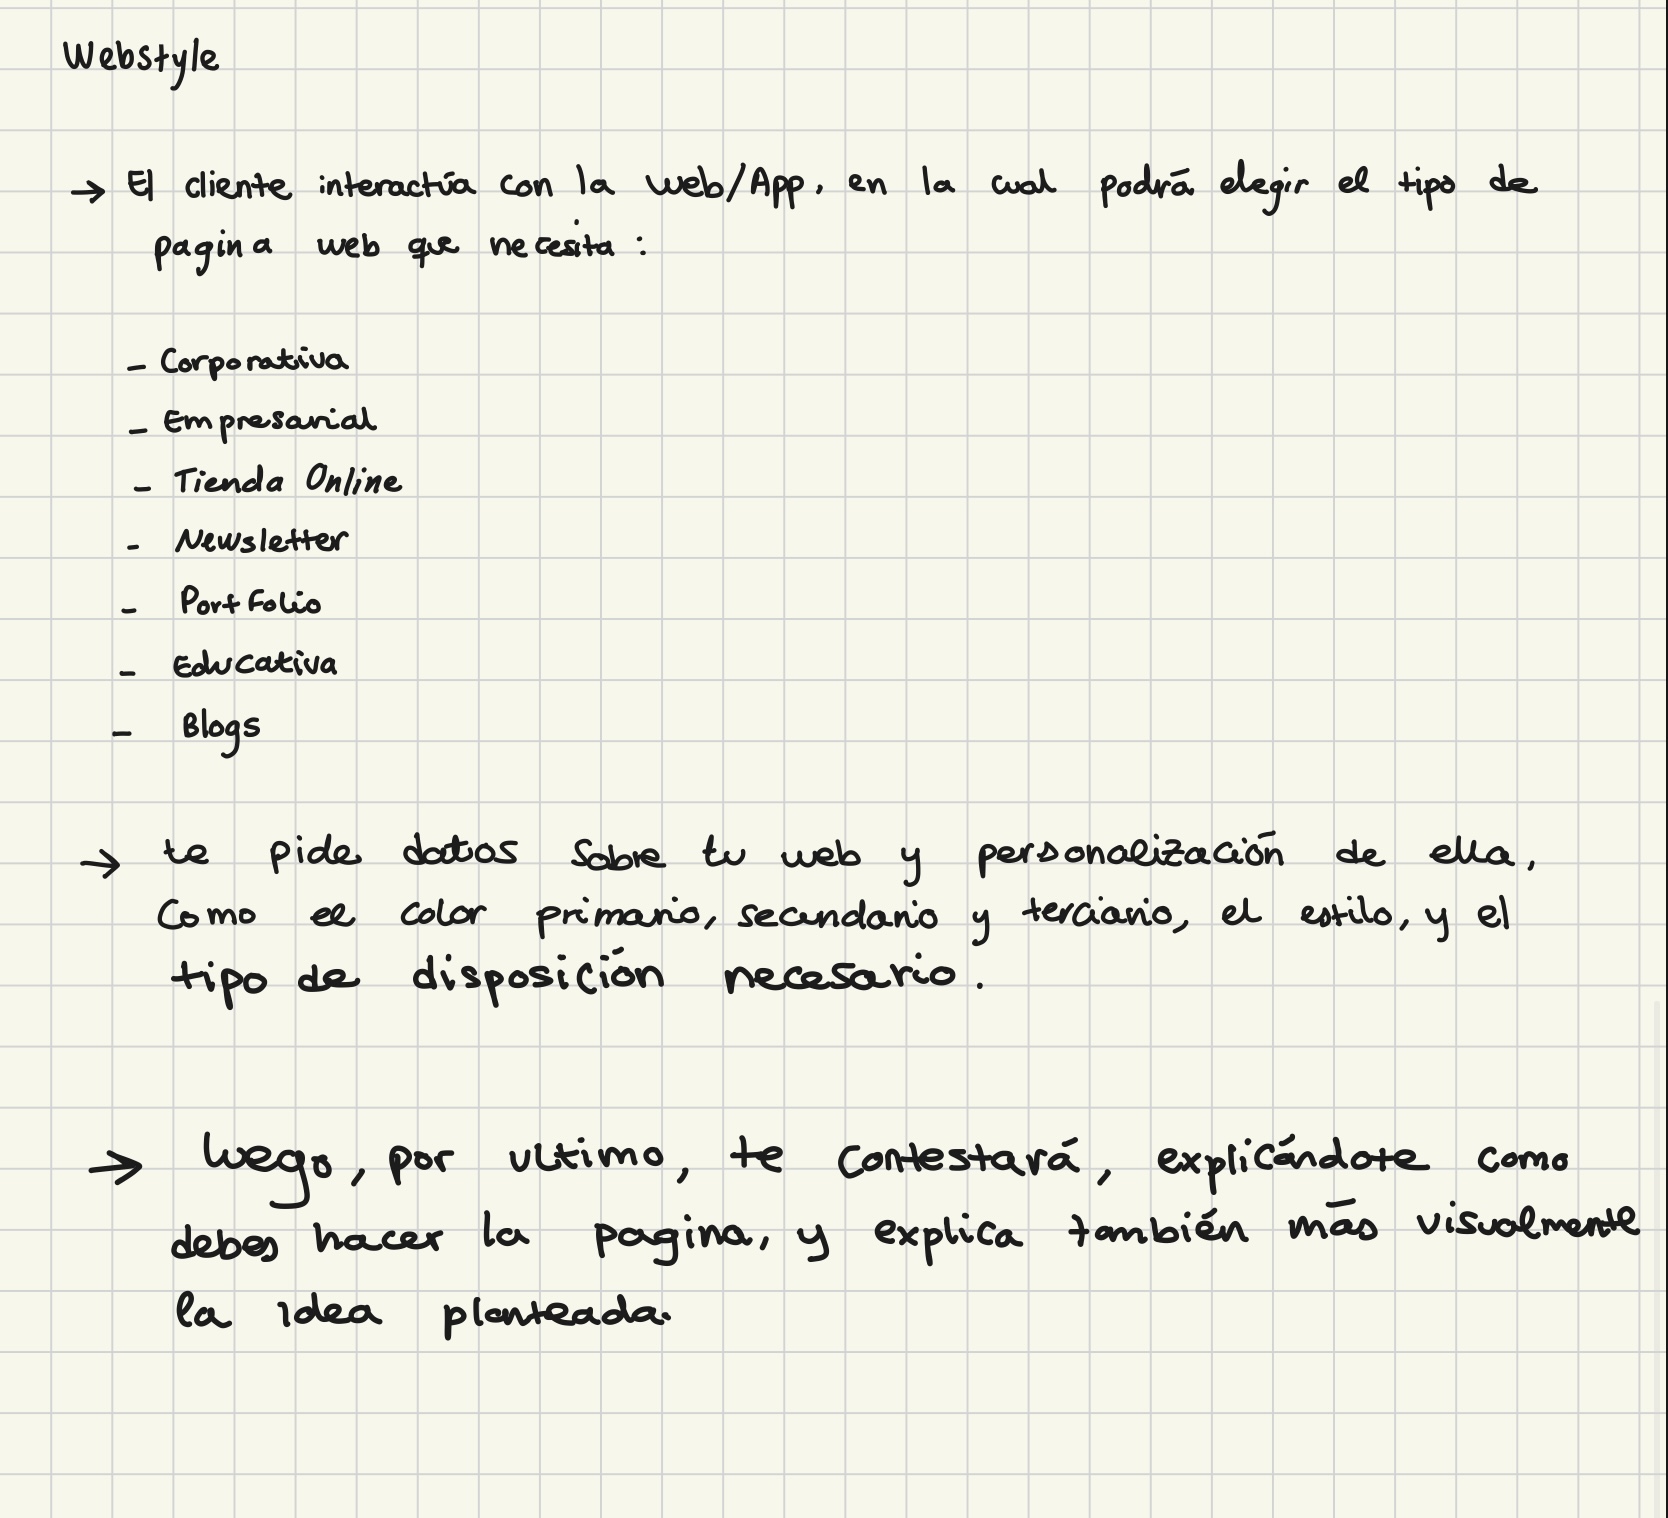 Webstyle
→ El cliente interactúa con la web/App, en la cual podrá elegir el tipo de
pagina web que necesita:
- Corporativa
- Empresarial
- Tienda Online
- Newsletter
- Portfolio
- Educativa
- Blogs
→ te pide datos sobre tu web y personalización de ella,
como el color primario, secundario y terciario, el estilo, y el
tipo de disposición necesario.
→ luego, por ultimo, te contestará, explicándote como
debes hacer la pagina, y explica también más visualmente
la idea planteada.